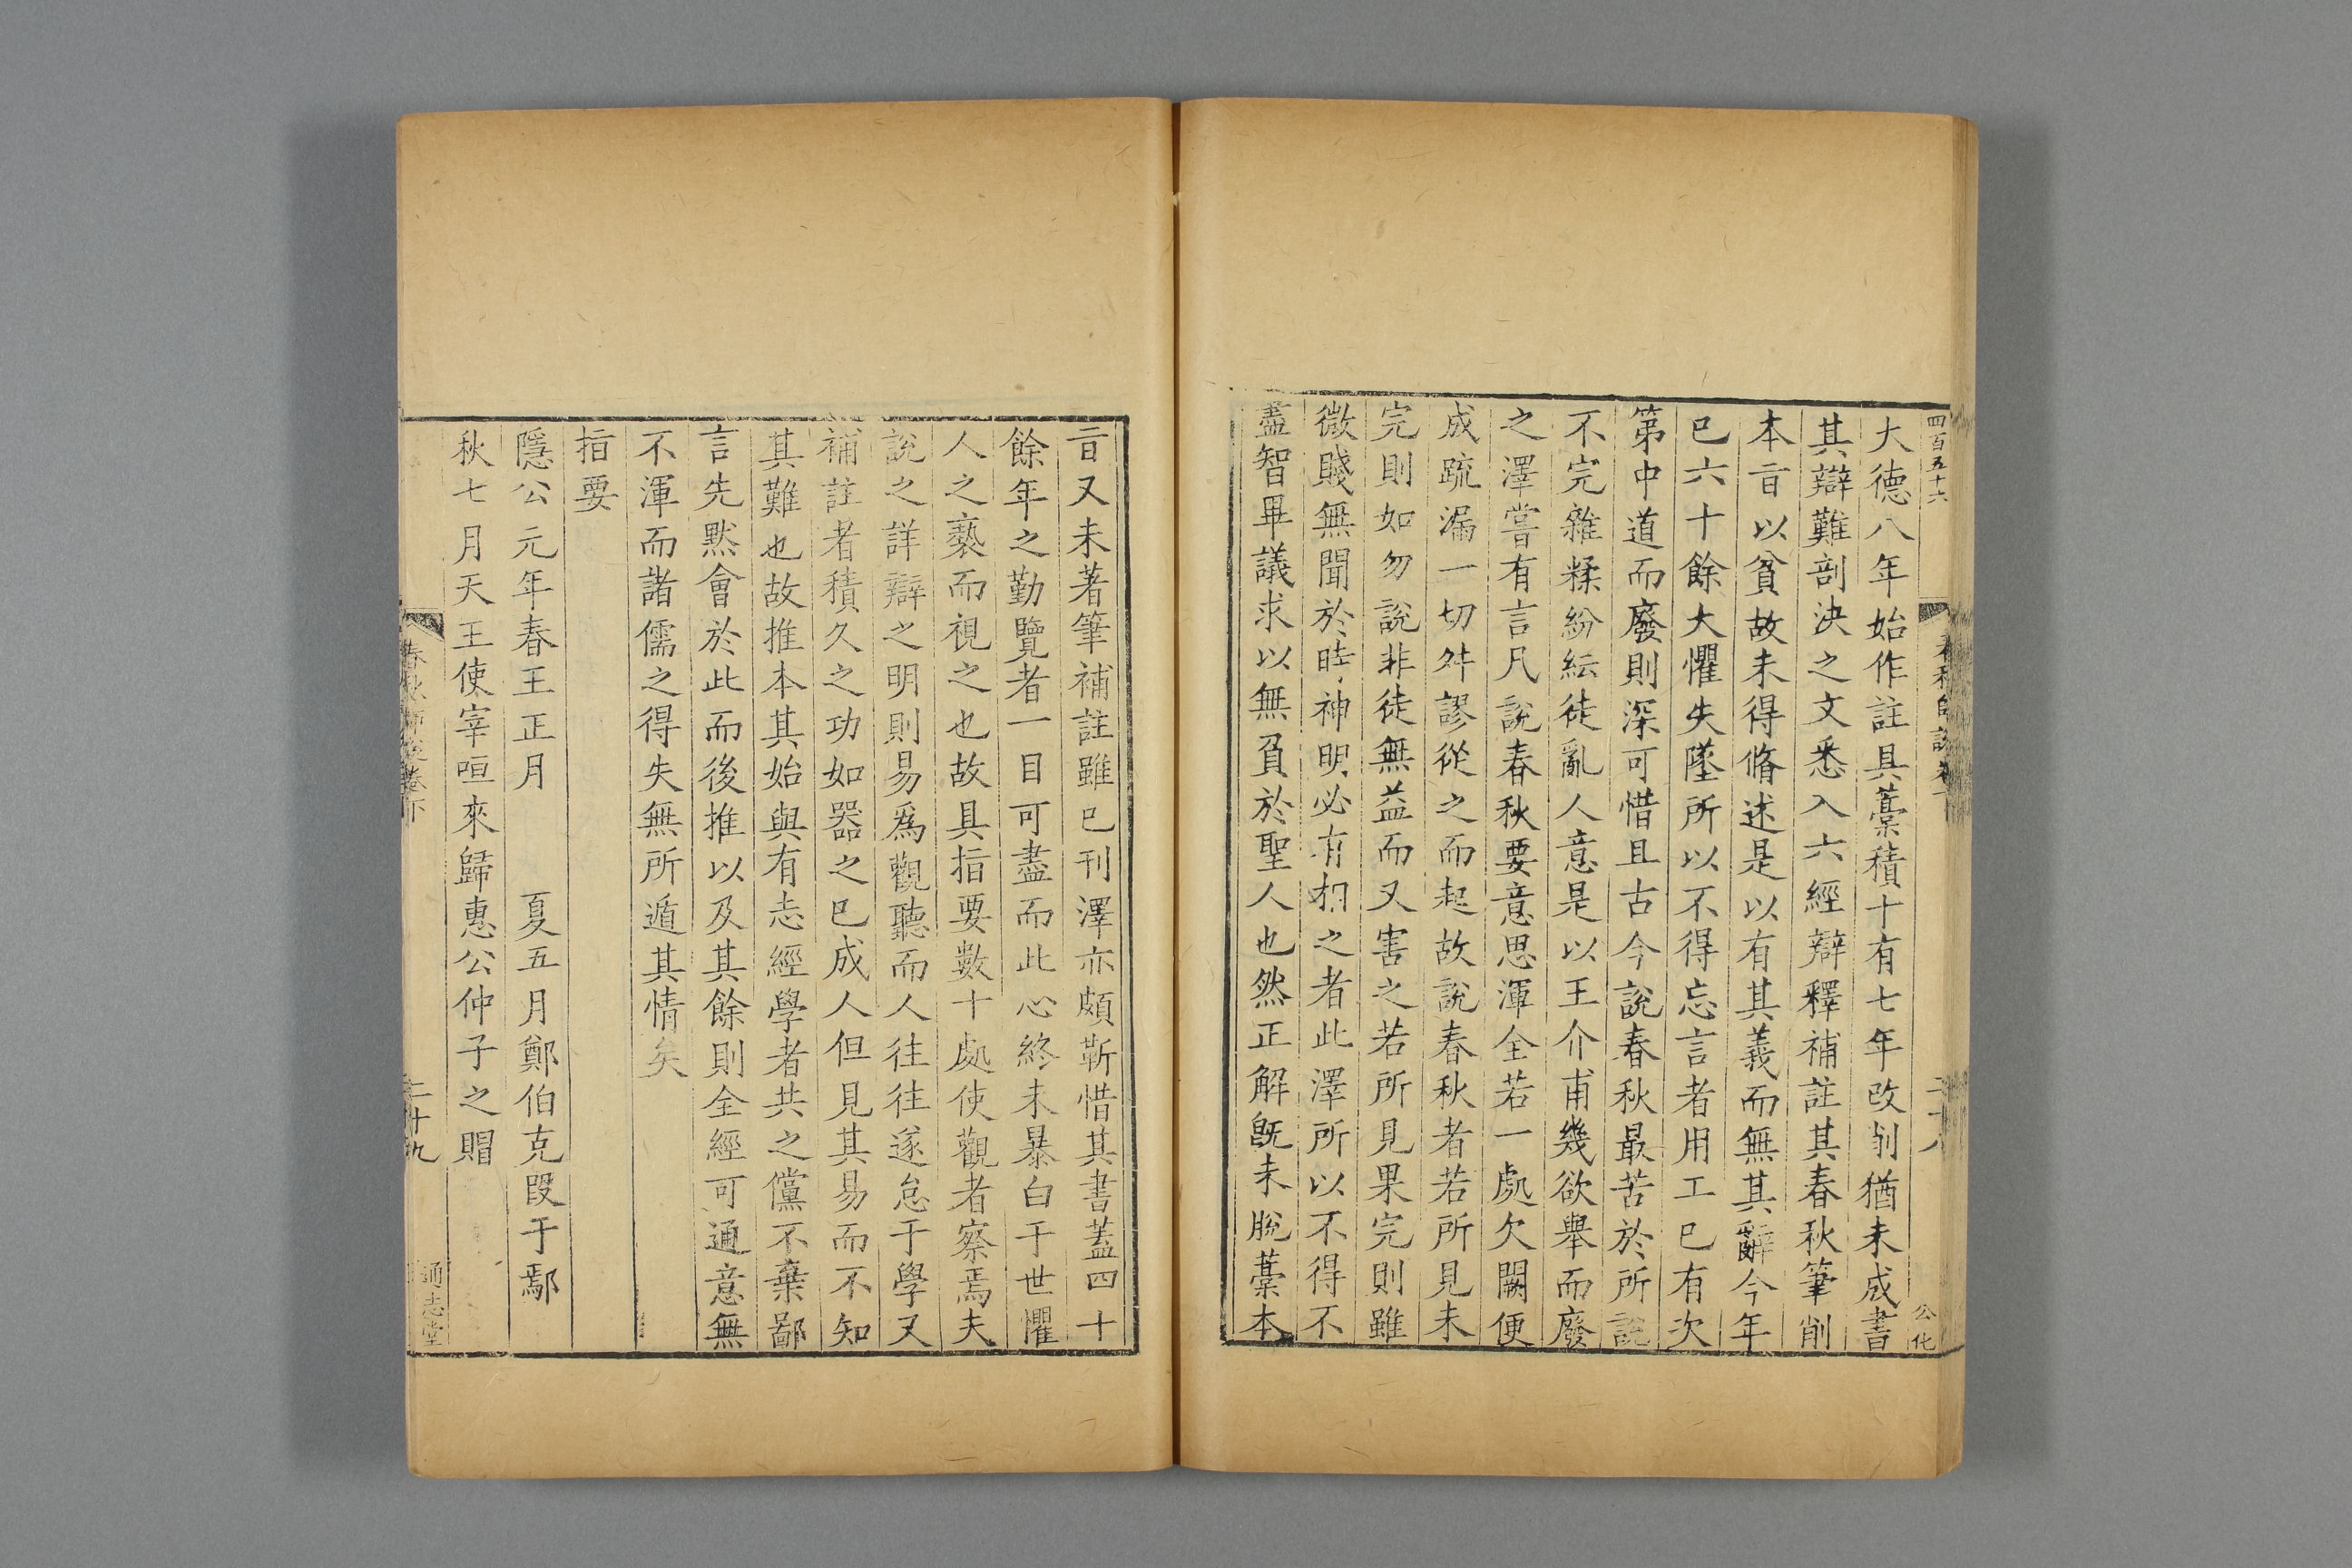 四百五十六
大德八年始作註具藁積十有七年改削猶未成書
其辯難剖決之文悉入六經辯釋補註其春秋筆削
本㫖以貧故未得脩述是以有其義而無其辭今年
已六十餘大懼失墜所以不得忘言者用工已有次
第中道而廢則深可惜且古今說春秋最苦於所說
不完雜糅紛紜徒亂人意是以王介甫幾欲舉而廢
之澤嘗有言凡說春秋要意思渾全若一處欠闕便
成疏漏一切舛謬從之而起故說春秋者若所見未
完則如勿說非徒無益而又害之若所見果完則雖
微賤無聞於時神明必有相之者此澤所以不得不
盡智畢議求以無負於聖人也然正解旣未脫藁本
㫖又未著筆補註雖已刊澤亦頗靳惜其書蓋四十
餘年之勤覽者一目可盡而此心終未暴白于世懼
人之褻而視之也故具指要數十處使觀者察焉夫
說之詳辯之明則易爲觀聽而人往往遂怠于學又
補註者積久之功如器之已成人但見其易而不知
其難也故推本其始與有志經學者共之儻不棄鄙
言先黙會於此而後推以及其餘則全經可通意無
不渾而諸儒之得失無所遁其情矣
指要
隱公元年春王正月　夏五月鄭伯克段于鄢
秋七月天王使宰咺來歸惠公仲子之賵
春秋師說卷下
二十九
通志堂